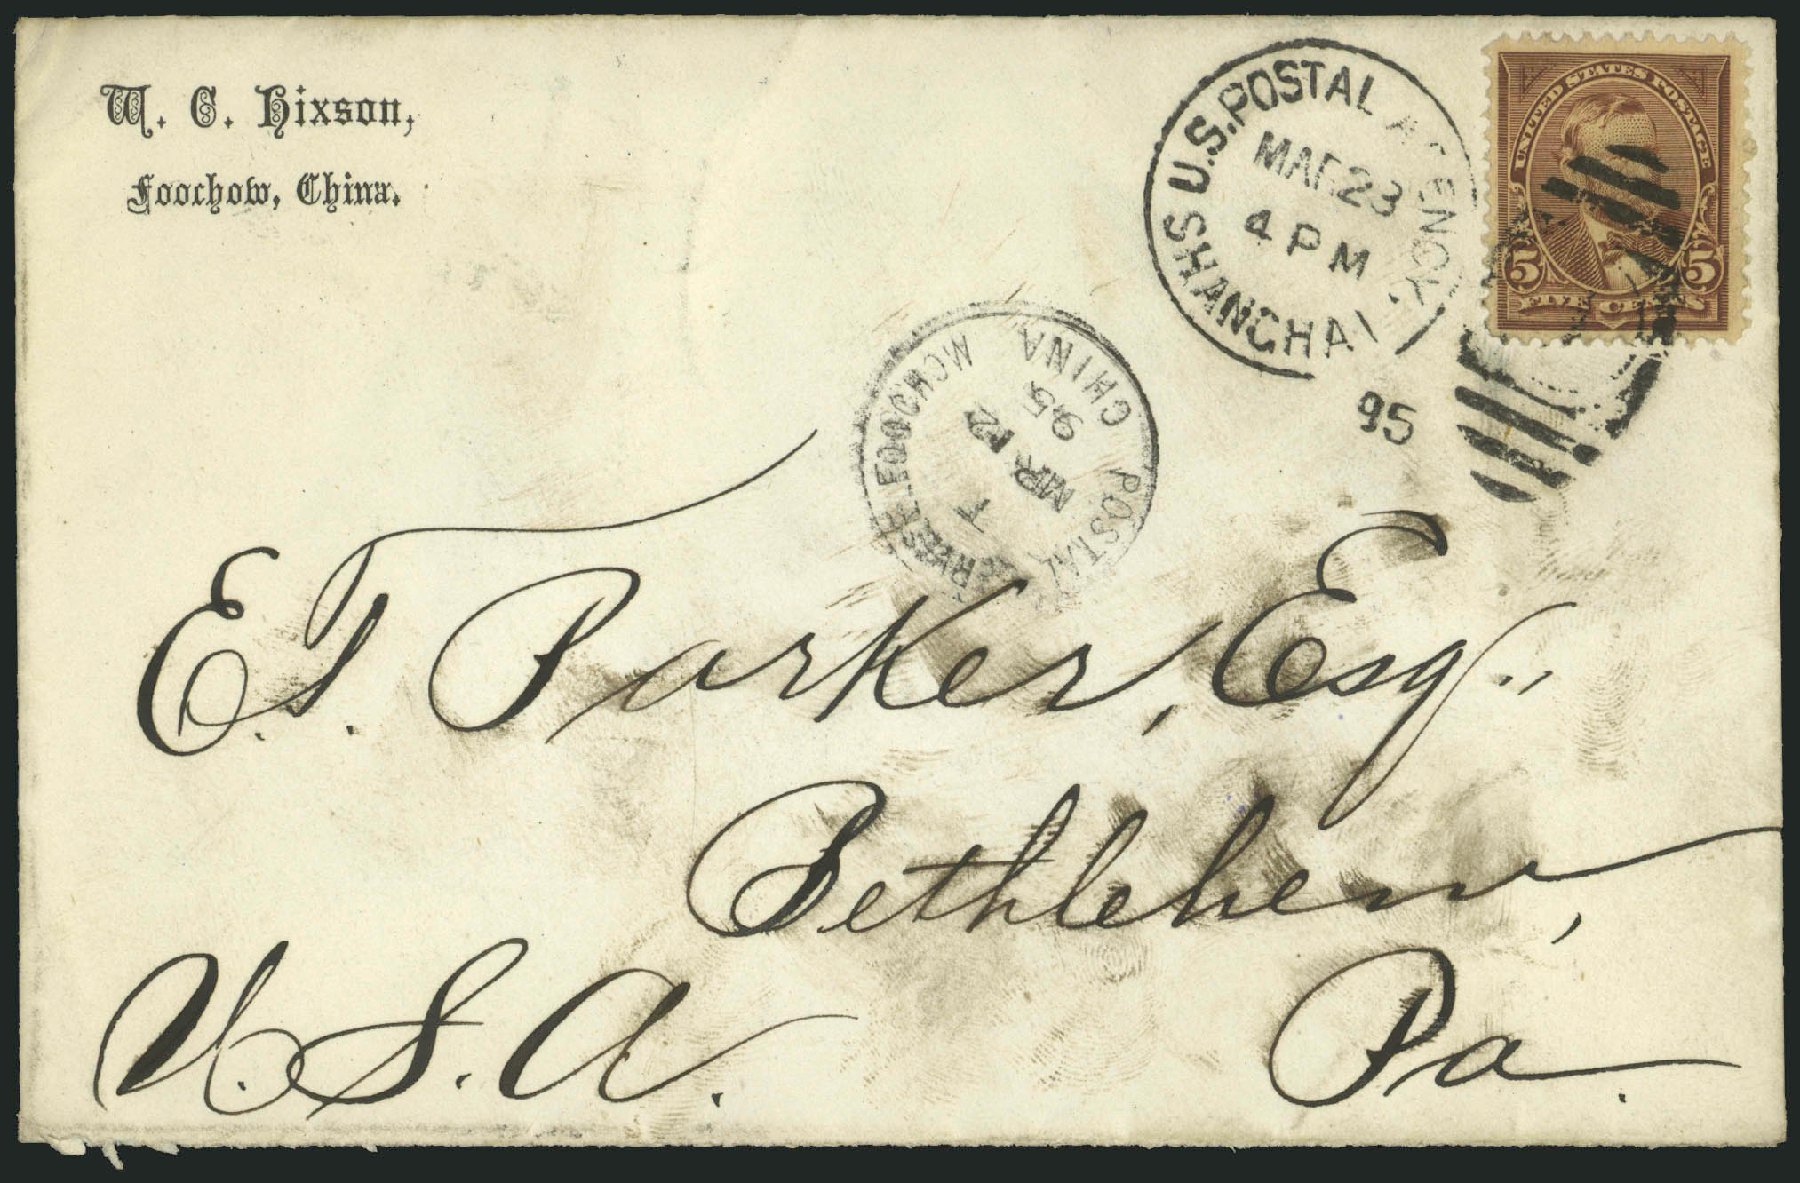 W. C. Hixson,
Foochow, China.
U.S. POSTAL AGENCY.
MAR 23
4 PM
SHANGHAI
95
UNITED STATES POSTAGE
5 5
FIVE CENTS
FOOCHOW
CHINA
95
12
POSTAL
E. T. Parker, Esq.,
Bethlehem,
Pa.
U. S. A.